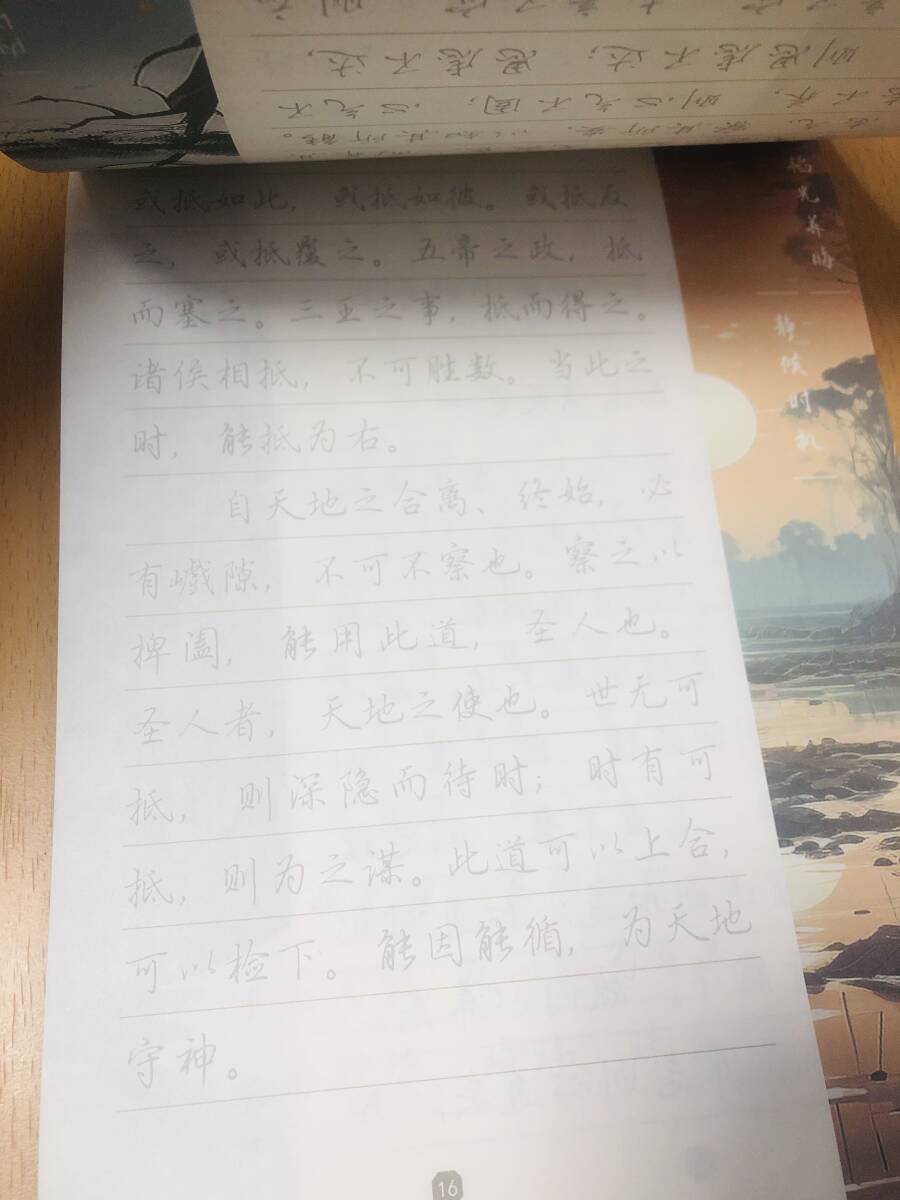 则思虑不达；思虑不达，
则心气不固；心气不
或抵如此，或抵如彼。或抵反
之，或抵覆之。五帝之政，抵
而塞之。三王之事，抵而得之。
诸侯相抵，不可胜数。当此之
时，能抵为右。
自天地之合离、终始，必
有巇隙，不可不察也。察之以
捭阖，能用此道，圣人也。
圣人者，天地之使也。世无可
抵，则深隐而待时；时有可
抵，则为之谋。此道可以上合，
可以检下。能因能循，为天地
守神。
韬光养晦
静候时机
16